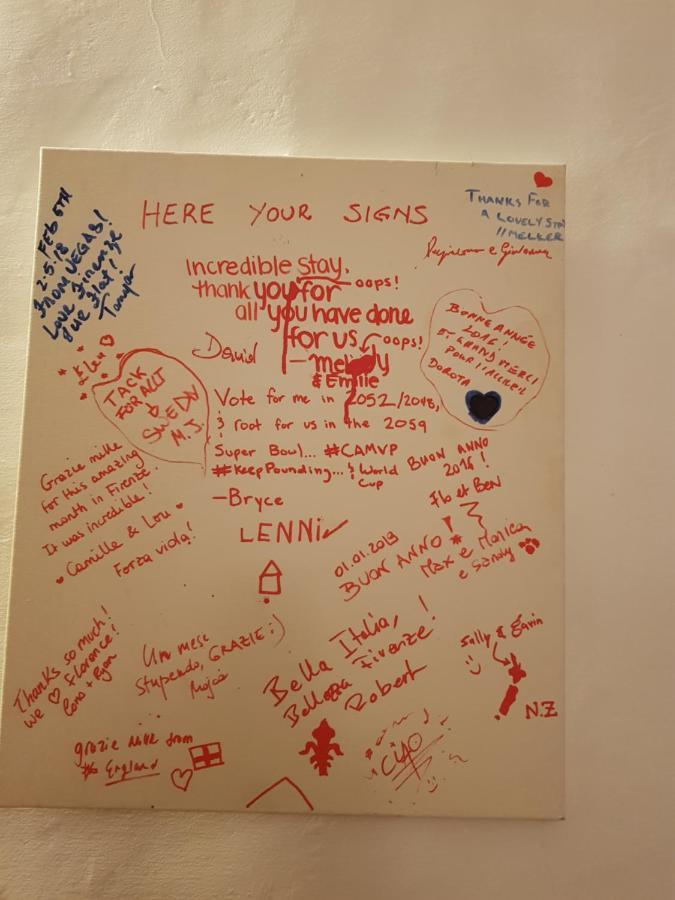 HERE YOUR SIGNS
2.5.18 FEB 5TH
FROM VEGAS!
Love Firenze
Tanya
THANKS FOR
A LOVELY STAY
//MELKER
Incredible stay.
thank you for oops!
all you have done
for us oops!
— melody
& Emilie
David
BONNE ANNÉE
2016!
ET GRAND MERCI
POUR L'ACCUEIL
DOROTA
TACK
FÖR ALLT
M.J.
Vote for me in 2052/2048,
& root for us in the 2059
Super Bowl... #CAMVP
#KeepPounding... & World
Cup
—Bryce
BUON ANNO
2016!
Flo et Ben
Grazie mille
for this amazing
month in Firenze.
It was incredible!
Camille & Lou
Forza viola!
LENNI
01.01.2019
BUON ANNO!
Max e Monica
e Sandy
Thanks so much!
we Florence!
Un mese
stupendo, GRAZIE :)
Bella Italia,
Bellezza Firenze!
Robert
Sally & Gavin
N.Z
grazie mille from
England
CIAO